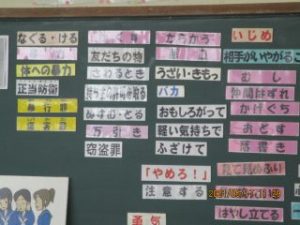 なぐる・ける
からかう
いじめ
友だちの物
相手がいやがるこ
体への暴力
さわるとき
うざい・きもっ
むし
正当防衛
バカ
仲間はずれ
暴行罪
ぬすむ・とる
おもしろがって
かげぐち
傷害罪
万引き
軽い気持ちで
おどす
窃盗罪
ふざけて
落書き
「やめろ！」
見て見ぬふり
注意する
勇気
はやし立てる